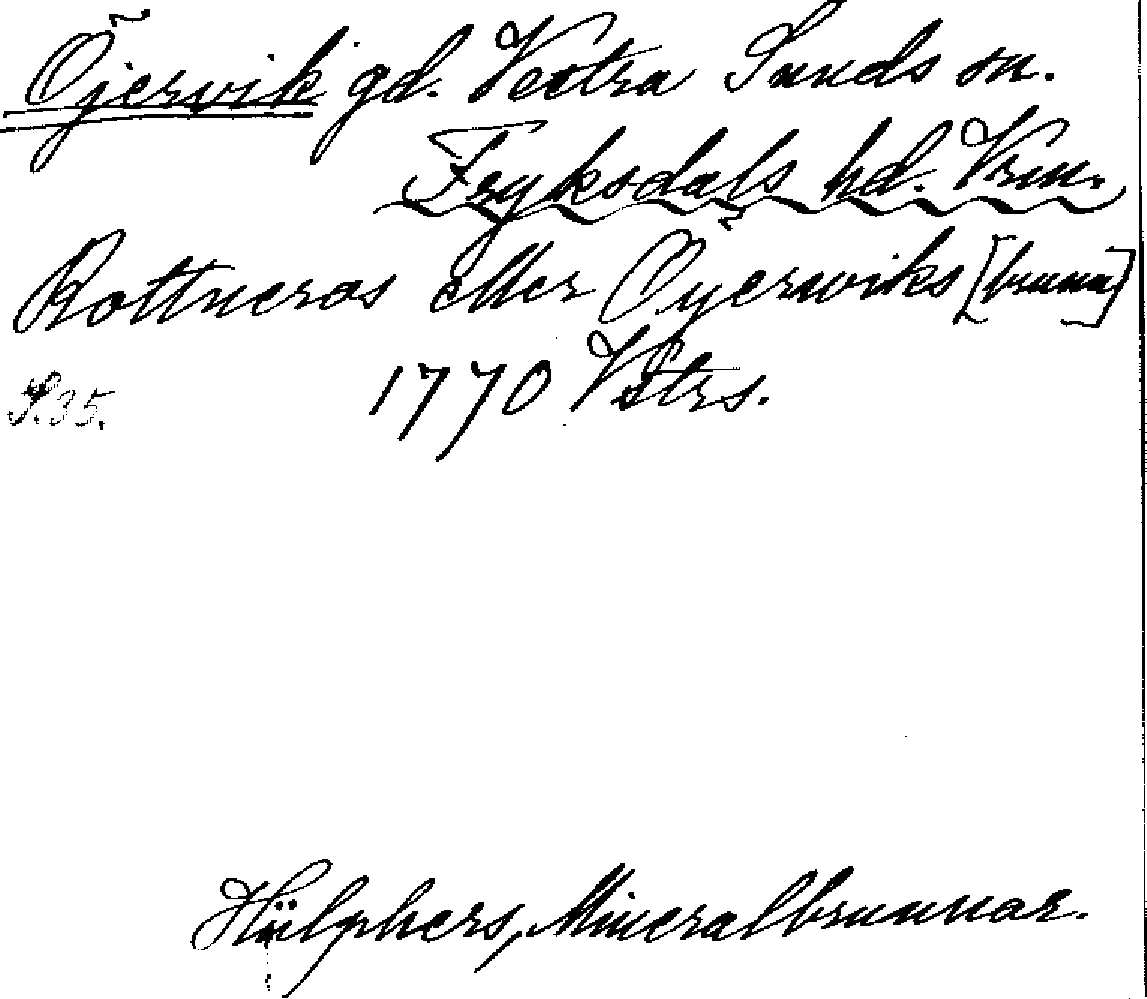 Öjervik gd. Vestra Sunds sn.
Fryksdals hd. Vrm.
Rottneros eller Öyerwiks [brunn]
S. 35. 1770 Vstrs.
Hülphers, Mineralbrunnar.